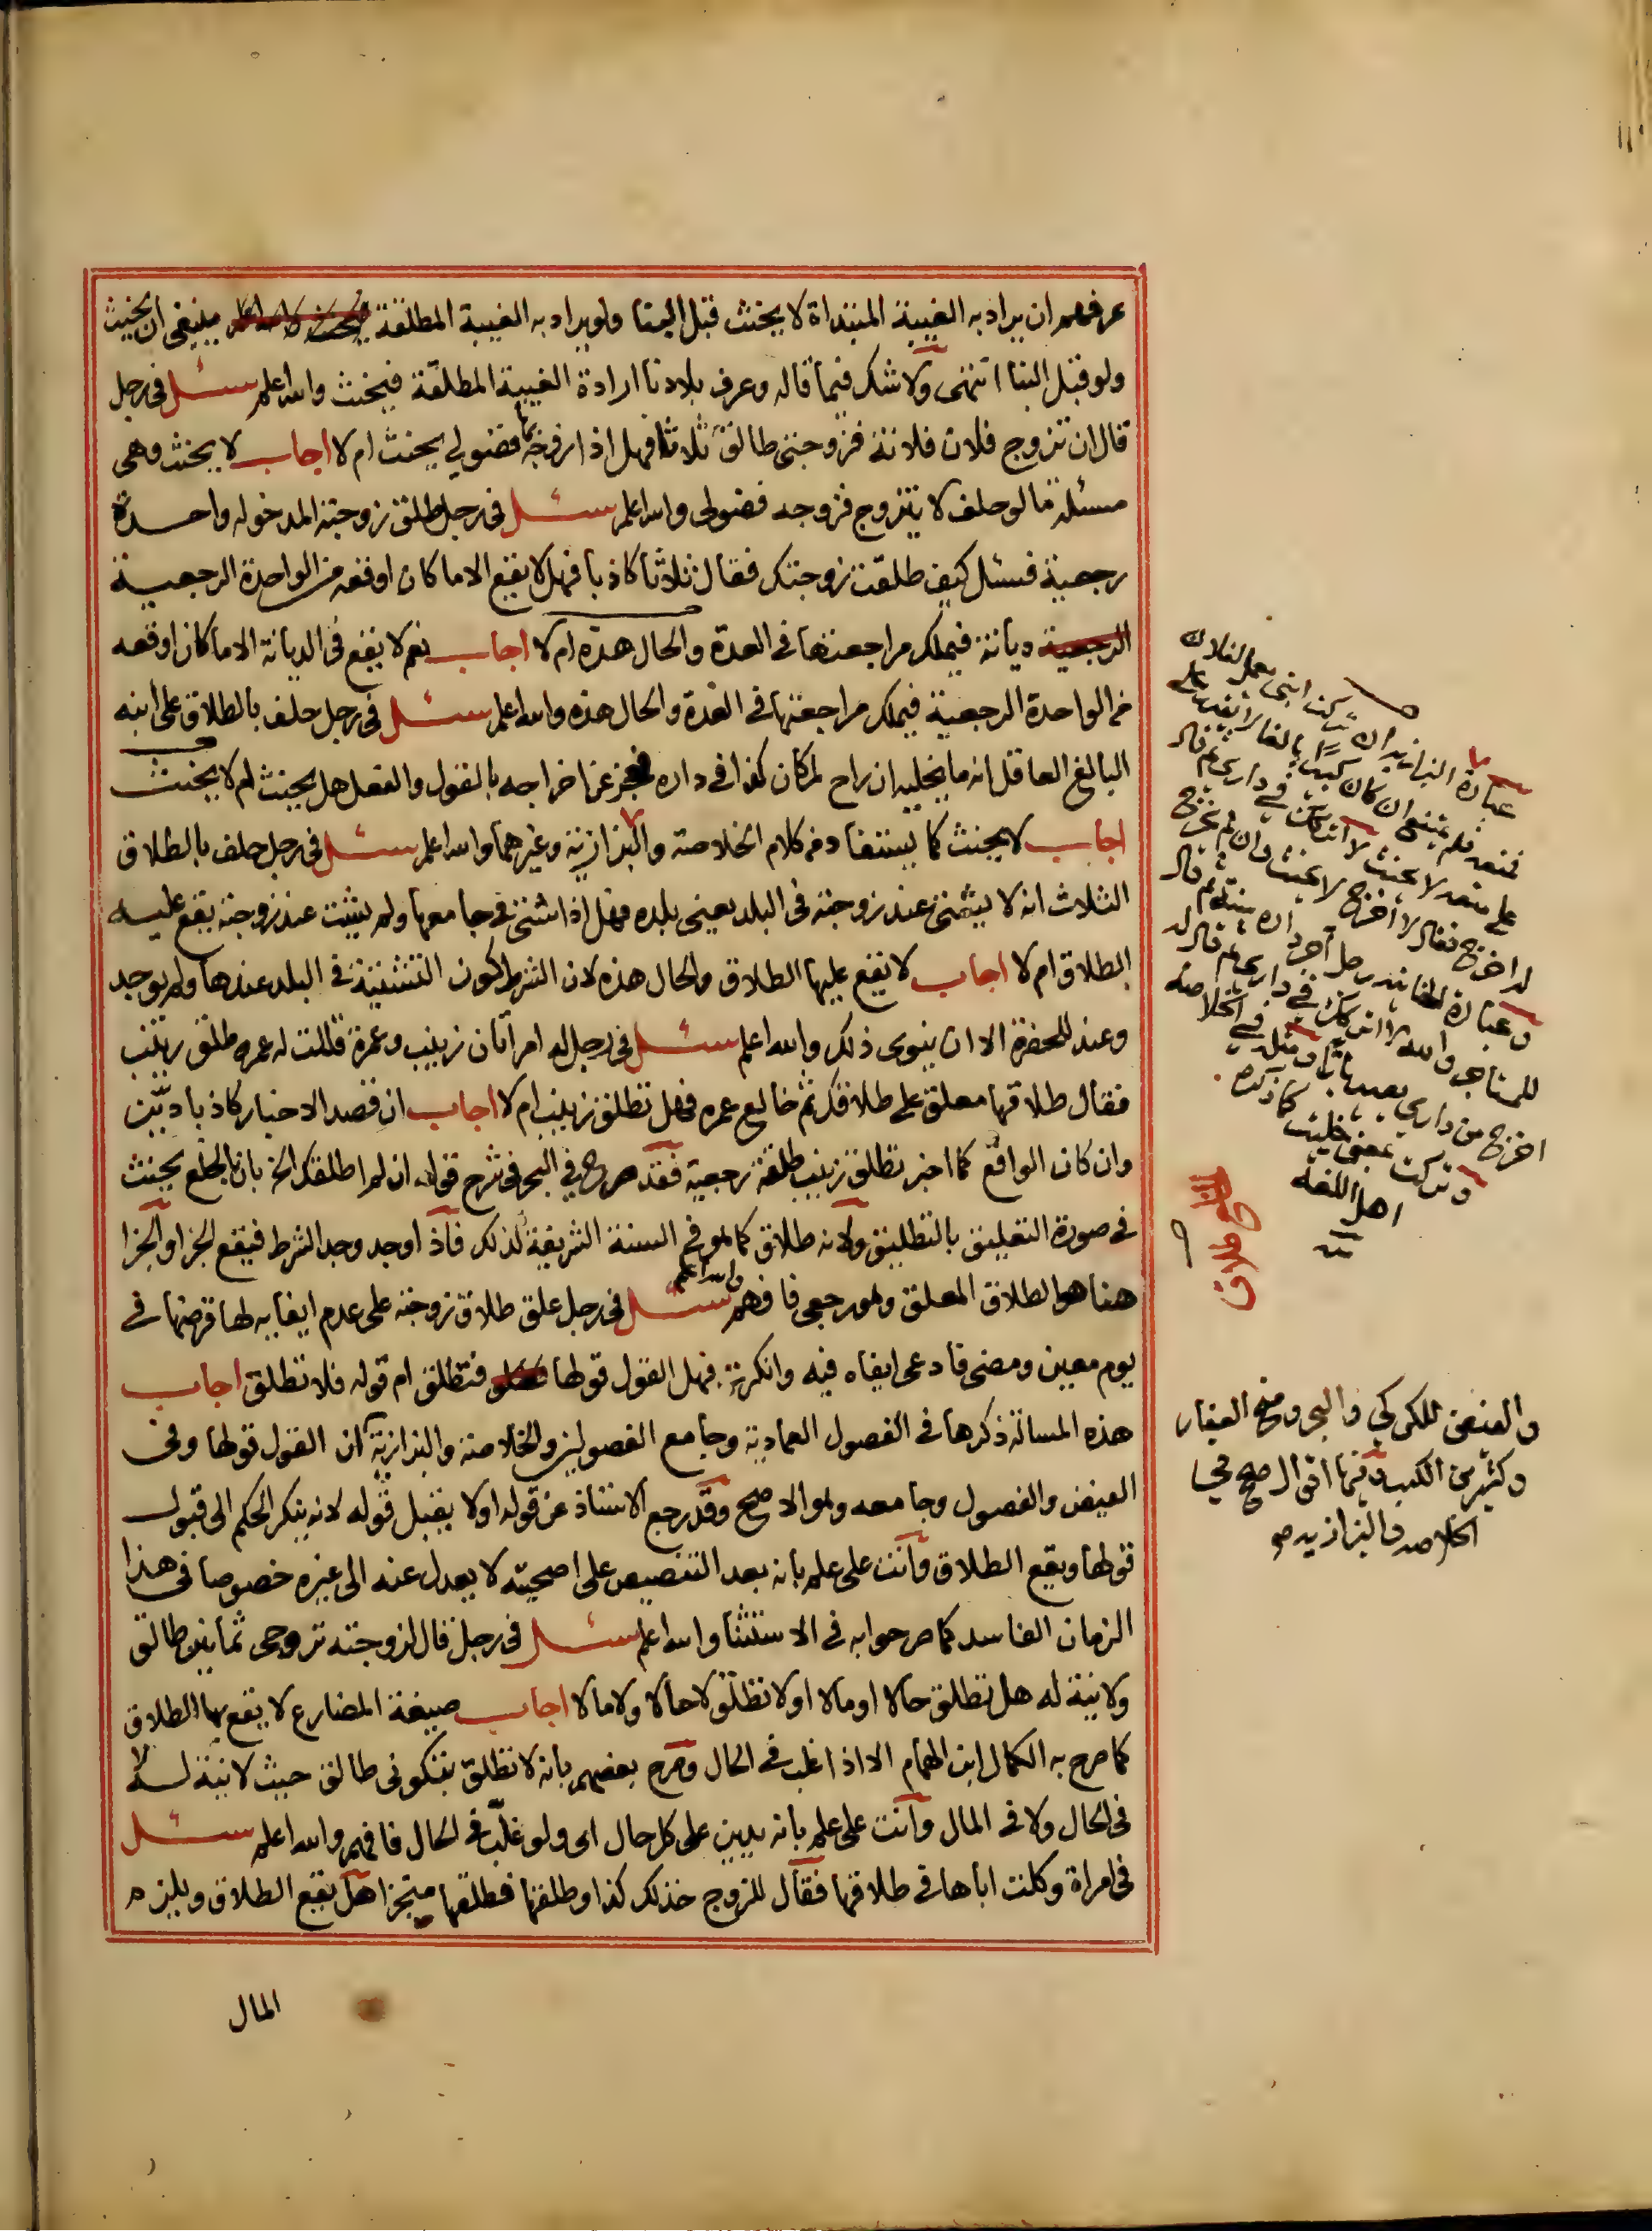 عرفهم ان يراد به الغيبة المبتداة لا يحنث قبل البنا ولو يراد به الغيبة المطلقة ينبغى ان يحنث
ولو قبل البنا انتهى ولا شك فيما قاله وعرف بلادنا ارادة الغيبة المطلقة فيحنث والله اعلم سئل فى رجل
قال ان تزوج فلان فلانة فزوجتى طالق ثلاثا فهل اذا زوجها فضولي يحنث ام لا اجاب لا يحنث وهى
مسئلة ما لو حلف لا يتزوج فزوجه فضولى والله اعلم سئل فى رجل طلق زوجته المدخوله واحدة
رجعية فسئل كيف طلقت زوجتك فقال ثلاثا كاذبا فهل لا يقع الا ما كان اوقعه من الواحدة الرجعية
الرجعية ديانة فيملك مراجعتها فى العدة والحال هذه ام لا اجاب نعم لا يقع فى الديانة الا ما كان اوقعه
من الواحدة الرجعية فيملك مراجعتها فى العدة والحال هذه والله اعلم سئل فى رجل حلف بالطلاق على ابنه
البالغ العاقل انه ما يخليه ان راح لمكان كذا فى داره فعجز عن اخراجه بالقول والفعل هل يحنث ام لا يحنث
اجاب لا يحنث كما يستفاد من كلام الخلاصة والبزازية وغيرهما والله اعلم سئل فى رجل حلف بالطلاق
الثلاث انه لا يشتى عند زوجته فى البلد يعنى بلده فهل اذا شتى فى جامعها ولم يبت عند زوجته يقع عليه
الطلاق ام لا اجاب لا يقع عليها الطلاق والحال هذه لان الشرط كون التشتية فى البلد عندها ولم يوجد
وعند للحضرة الا ان ينوى ذلك والله اعلم سئل فى رجل له امرأتان زينب وعمرة قالت له عمره طلق زينب
فقال طلاقها معلق على طلاقك ثم خالع عمره فهل تطلق زينب ام لا اجاب ان قصد الاخبار كاذبا ديّن
وان كان الواقع كما اخبر تطلق زينب طلقة رجعية فقد صرح في البحر فى شرح قوله ان لم اطلقك الخ بان بالخلع يحنث
فى صورة التعليق بالتطليق ولانه طلاق كما هو فى السنة الشريفة كذلك فاذا وجد وجد الشرط فيقع الجزا والجزا
هنا هو الطلاق المعلق وهو رجعى فافهم والله اعلم سئل فى رجل علق طلاق زوجته على عدم ايفايه لها قرضها فى
يوم معين ومضى فادعى ايفاه فيه وانكرته فهل القول قولها فتطلق ام قوله فلا تطلق اجاب
هذه المسالة ذكرها فى الفصول العمادية وجامع الفصولين والخلاصة والبزازية ان القول قولها وفى
الفيض والفصول وجامعه وهو الاصح وقد رجع الاستاذ عن قوله اولا يقبل قوله لانه ينكر الحكم الى قبول
قولها ويقع الطلاق وانت على علم بانه بعد التنصيص على اصحيته لا يعدل عنه الى غيره خصوصا فى هذا
الزمان الفاسد كما صرحوا به فى الاستثنا والله اعلم سئل فى رجل قال لزوجته تروحى ثمانين طالق
ولا نية له هل تطلق حالا او مالا او لا تطلق لا حالا ولا مالا اجاب صيغة المضارع لا يقع بها الطلاق
كما صرح به الكمال ابن الهمام الا اذا غلب فى الحال وصرح بعضهم بانه لا تطلق بتكونى طالق حيث لا نية له لا
فى الحال ولا فى المال وانت على علم بانه يدين على كل حال اى ولو غلّب فى الحال فافهم والله اعلم سئل
فى امراة وكلت اباها فى طلاقها فقال للزوج خذ لك كذا وطلقها فطلقها منجزا هل يقع الطلاق ويلزم
المال
عبارة البزازية ان تركت ابنى يعمل لفلان
فمنعه فلم يمتنع ان كان كبيرا بالغا لا يقدر على
على منعه لا يحنث لا اتركك فى دارى ثم قال
له اخرج فقال لا اخرج لا يحنث وان لم يخرج
وعبارة الخانية رجل آجر داره سنة ثم قال
للمستاجر والله لا اتركك فى دارى ثم قال له
اخرج من دارى ومثله فى الخلاصة
وتركت بمعنى خليت كما ذكره
اهل اللغة
والفيض للكركي والبحر ومنح الغفار
وكثير من الكتب وفيها اقوال صح في
الخلاصه والبزازيه